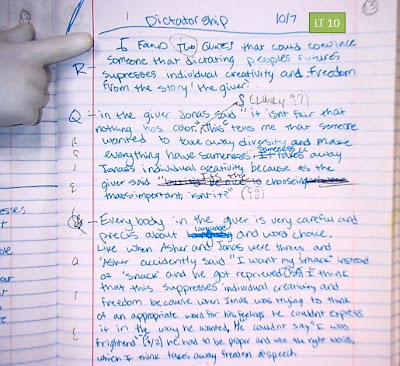 Dictatorship 10/7 LT 10
I Fand Two Quotes that could convince
someone that dictating peoples futures
R - supresses individual creativity and freedom
from the story "the giver".
Q - in the giver Jonas said "it isnt fair that
nothing has color." This tells me that someone
R wanted to take away diversity and make
E everything have sameness. It takes away
Jonas's individual creativity because as the
giver said choosing
thats important, isnt it?"
- Every body in the giver is very careful and
precis about language and word choice.
Like when Asher and Jonas were threes and
Asher accidently said "I want my smack" instead
of "snack" and he got I think
that this suppresses individual creativity and
freedom because when Jonas was trying to think
of an appropriate word for his feelings he couldnt express
it in the way he wanted, He couldnt say "I was
frightend" he had to be proper and use the right words,
which I think takes away freedom of speech